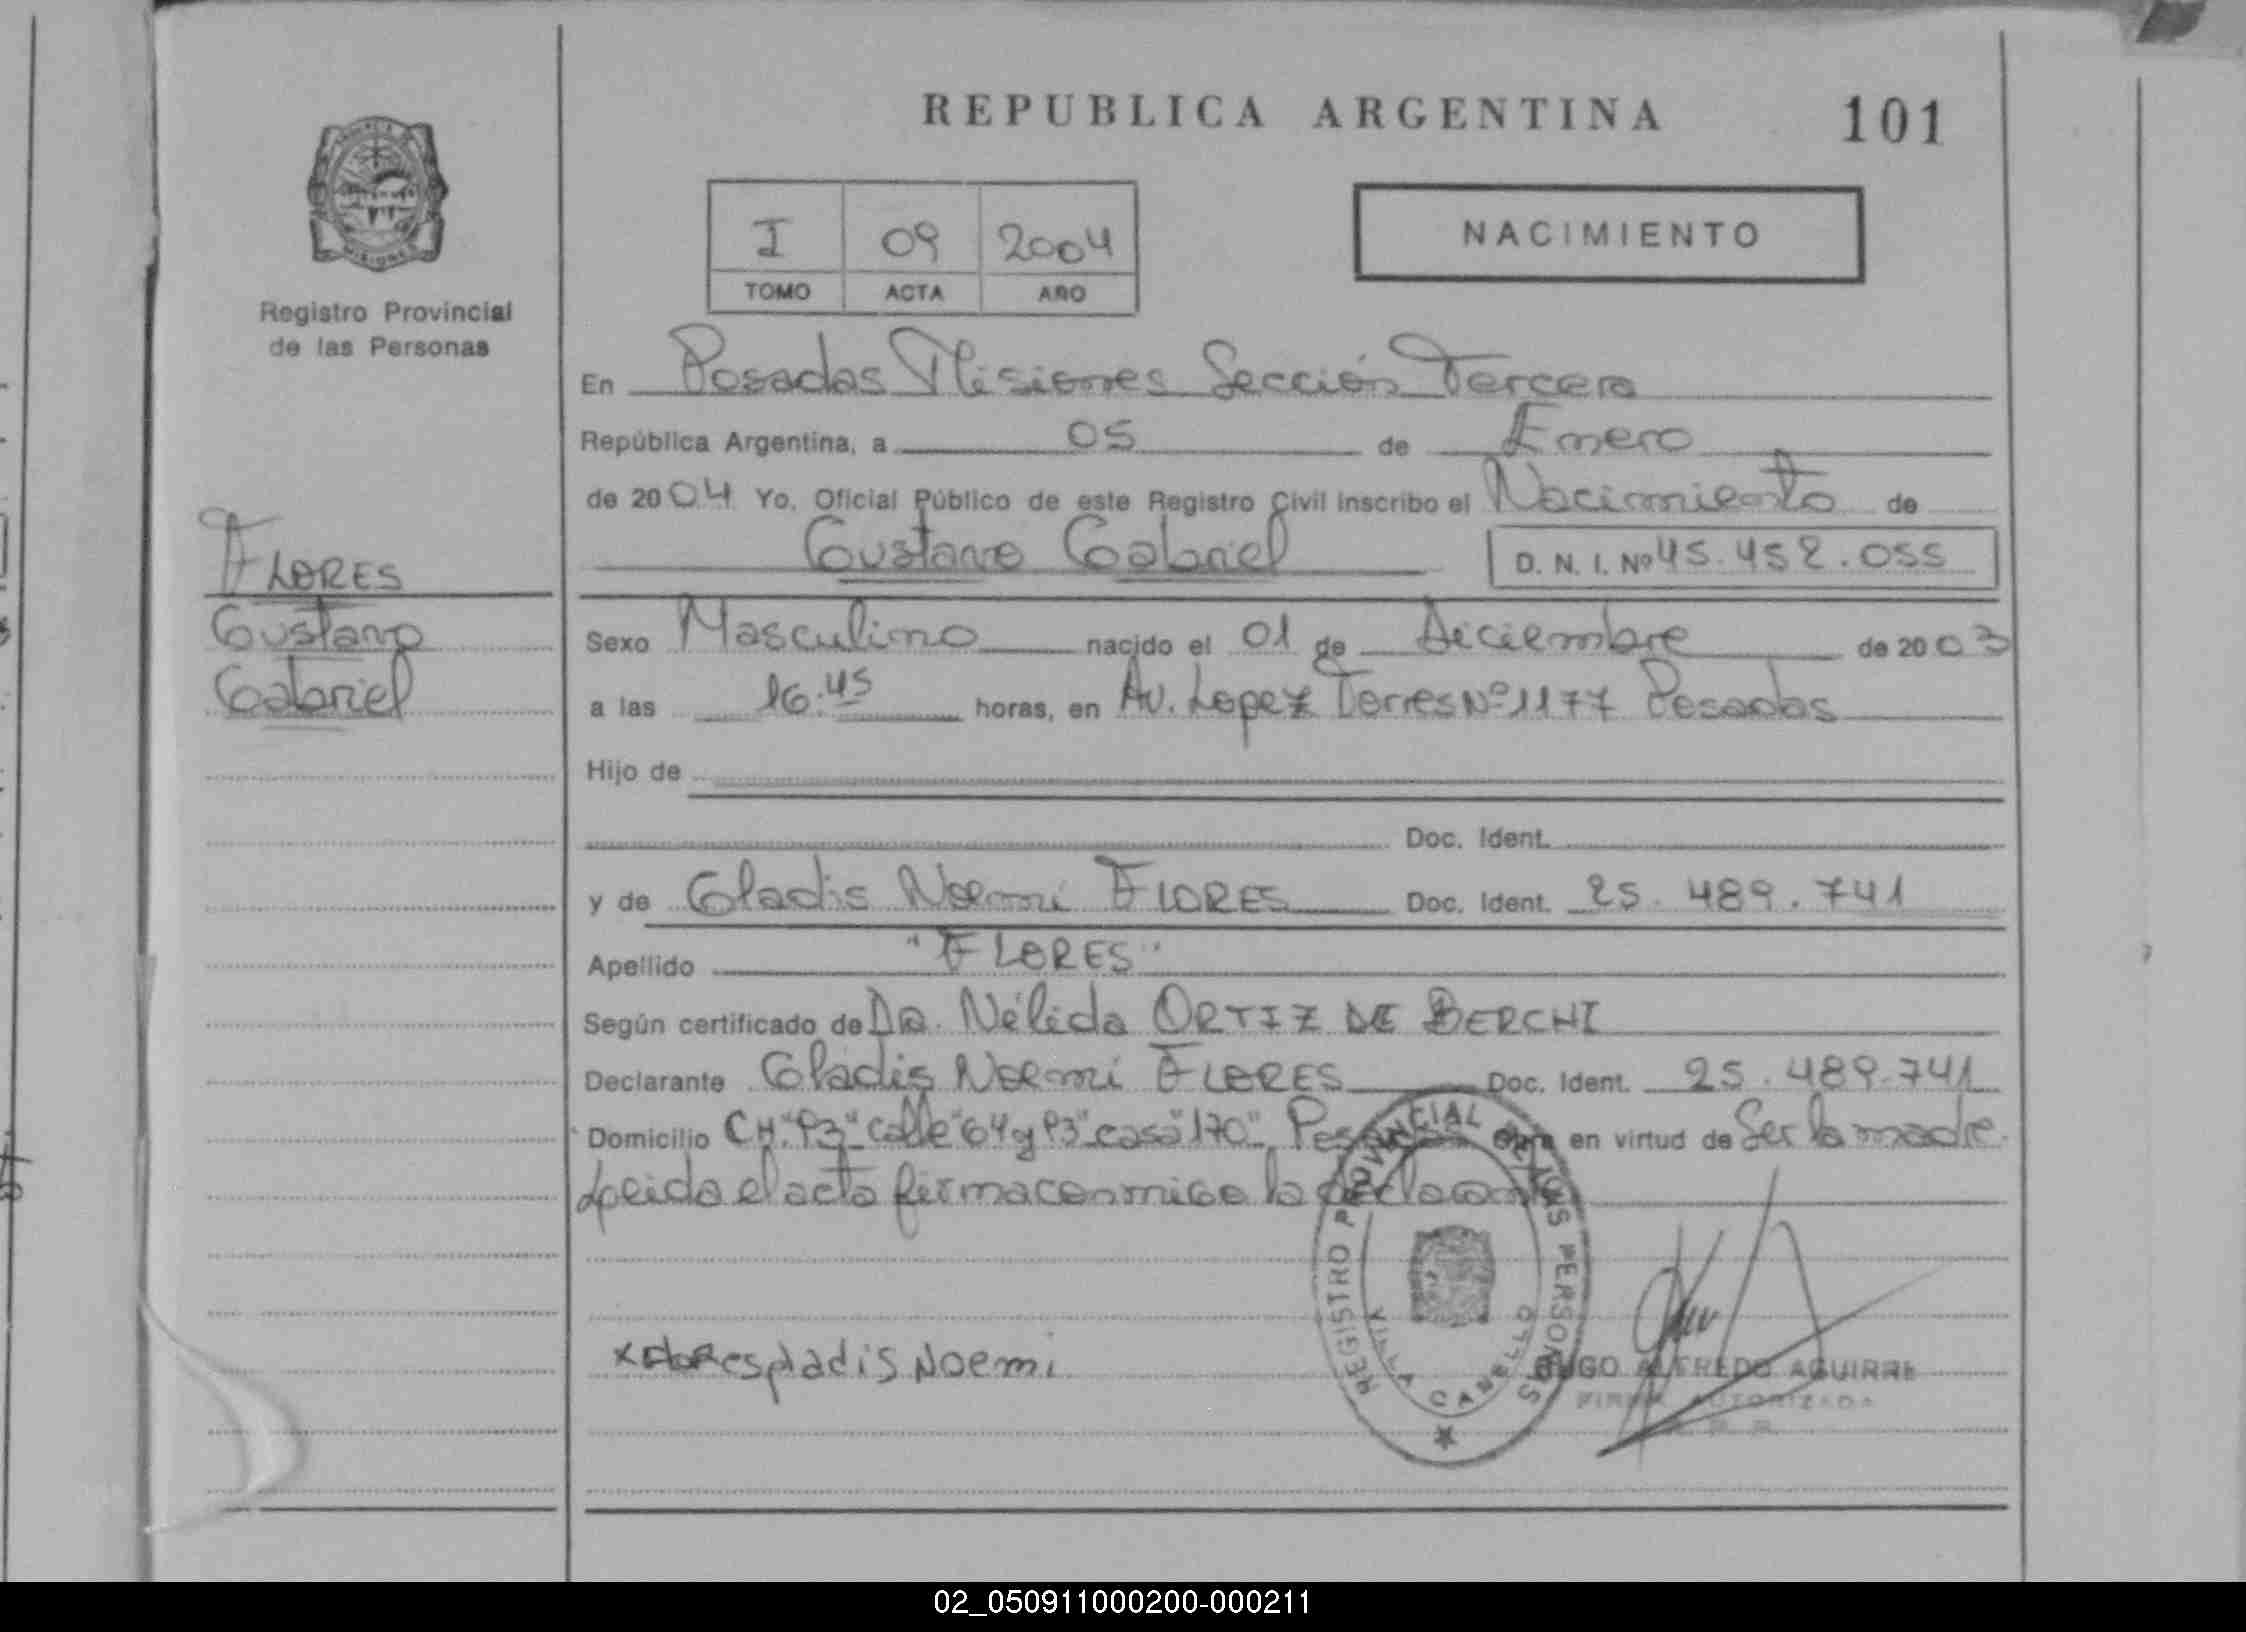 REPUBLICA ARGENTINA 101
I 09 2004
TOMO ACTA AÑO
NACIMIENTO
Registro Provincial
de las Personas
FLORES
Gustavo
Gabriel
En Posadas Misiones Sección Tercera
República Argentina, a 05 de Enero
de 2004 Yo, Oficial Público de este Registro Civil inscribo el Nacimiento de
Gustavo Gabriel D. N. I. Nº 45.452.055
Sexo Masculino nacido el 01 de Diciembre de 2003
a las 16:45 horas, en Av. Lopez Torres Nº 1177 Posadas
Hijo de
Doc. Ident.
y de Gladis Noemi FLORES Doc. Ident. 25.489.741
Apellido "FLORES"
Según certificado de Dra. Nélida ORTIZ DE BERCHI
Declarante Gladis Noemi FLORES Doc. Ident. 25.489.741
Domicilio CH. "93" calle "64 y 93" casa "170", Posadas en virtud de Ser la madre
Leida el acta firma conmigo la declarante
x Flores gladis Noemi
REGISTRO PROVINCIAL DE LAS PERSONAS
VILLA CABELLO
HUGO ALFREDO AGUIRRE
FIRMA AUTORIZADA
02_050911000200-000211